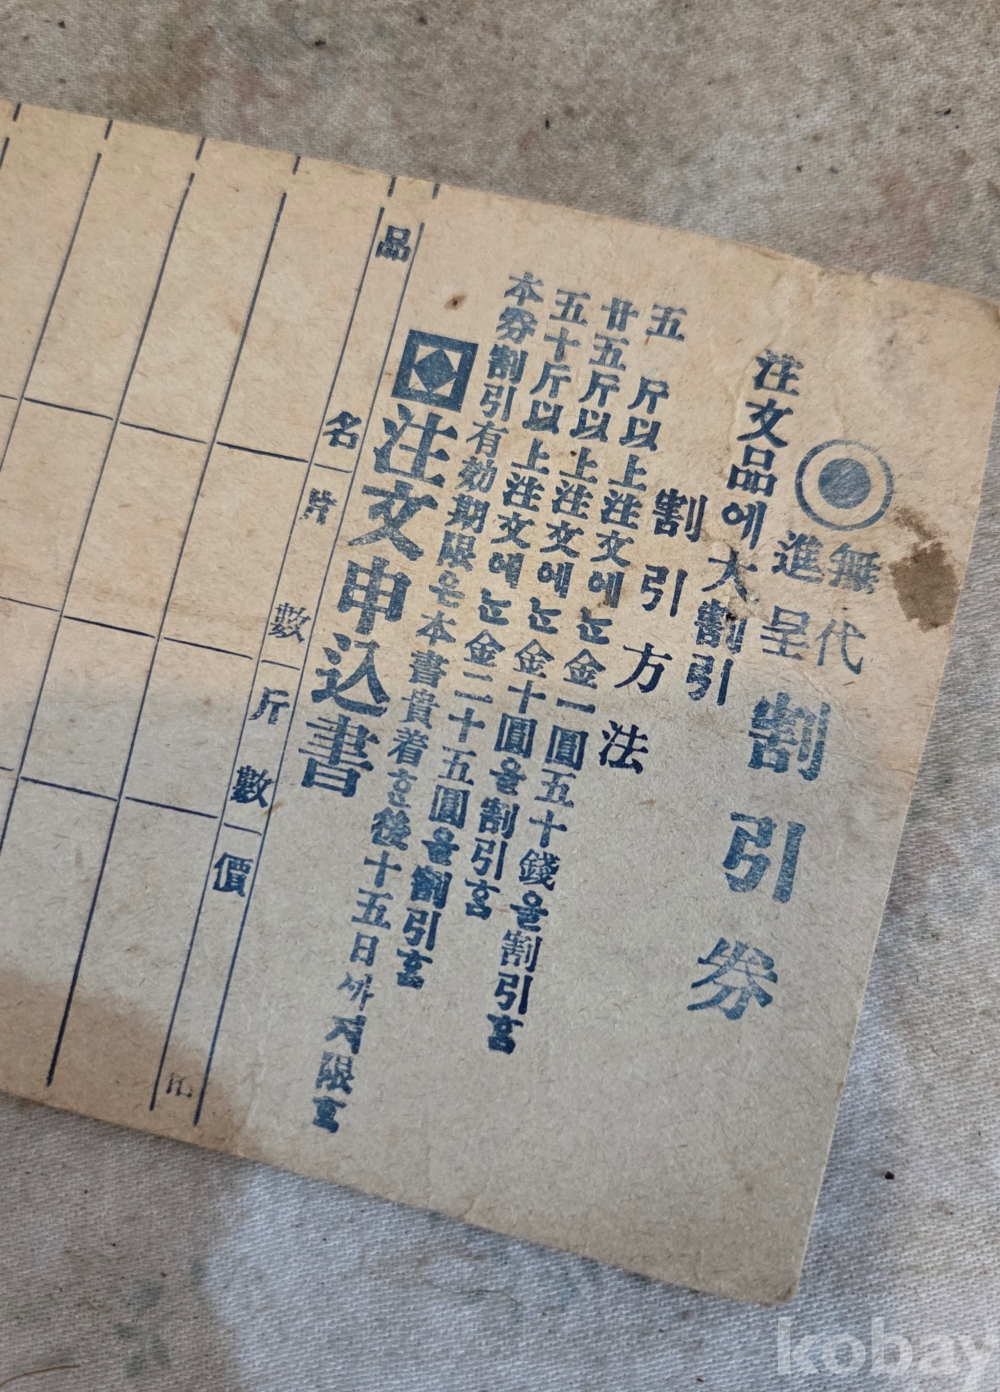 無代
進呈
割引券
注文品에大割引
割引方法
五斤以上注文에는金一圓五十錢을割引홈
廿五斤以上注文에는金十圓을割引홈
五十斤以上注文에는金二十五圓을割引홈
本券割引有効期限은本書貴着호後十五日ᄭᅡ지限홈
注文申込書
品名
片數
斤數
價
kobay